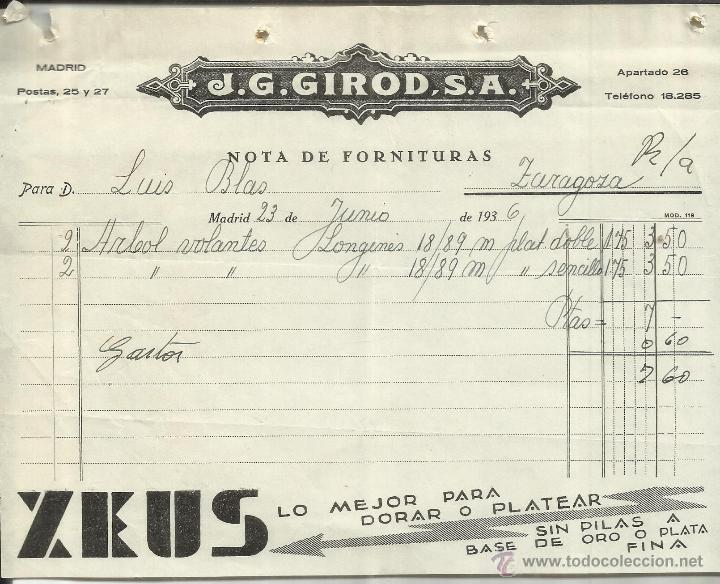 MADRID
Postas, 25 y 27
J. G. GIROD, S. A.
Apartado 26
Teléfono 18.285
NOTA DE FORNITURAS
R/a
Para D. Luis Blas Zaragoza
Madrid 23 de Junio de 1936
MOD. 118
2 Arbol volantes Longines 18/89 m plat. doble 1'75 3 50
2 " " " 18/89 m " sencillo 1'75 3 50
Ptas = 7 -
Gastos 0 60
7 60
ZEUS
LO MEJOR PARA
DORAR O PLATEAR
SIN PILAS A
BASE DE ORO O PLATA
FINA
www.todocoleccion.net